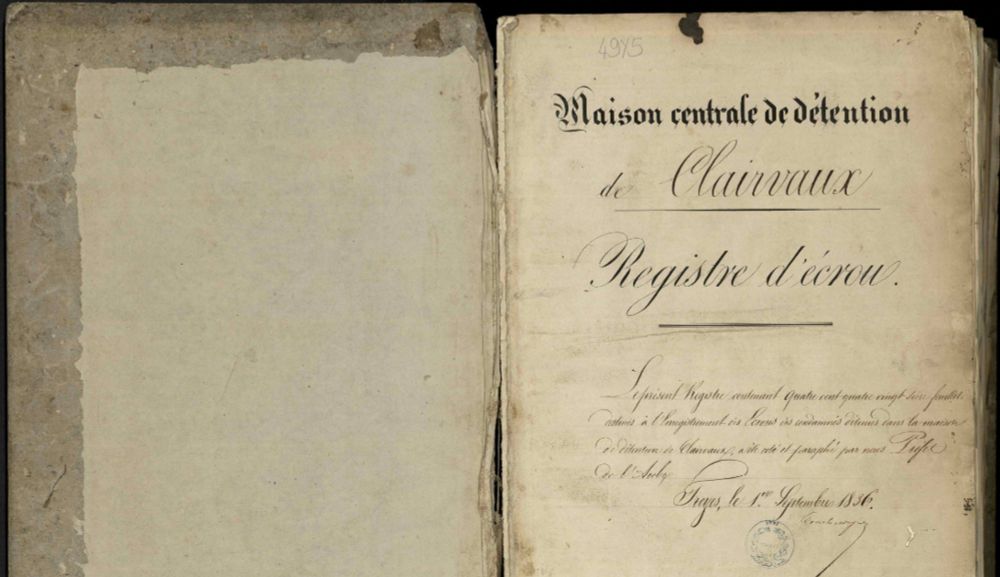 49Y5
Maison centrale de détention
de Clairvaux
Registre d'écrou.
Le présent Registre contenant quatre cent quatre vingt feuillets
destinés à l'Enregistrement des Ecrous des condamnés détenus dans la maison
de détention de Clairvaux, a été coté et paraphé par nous Préfet
de l'Aube
Troyes, le 1er Septembre 1856.